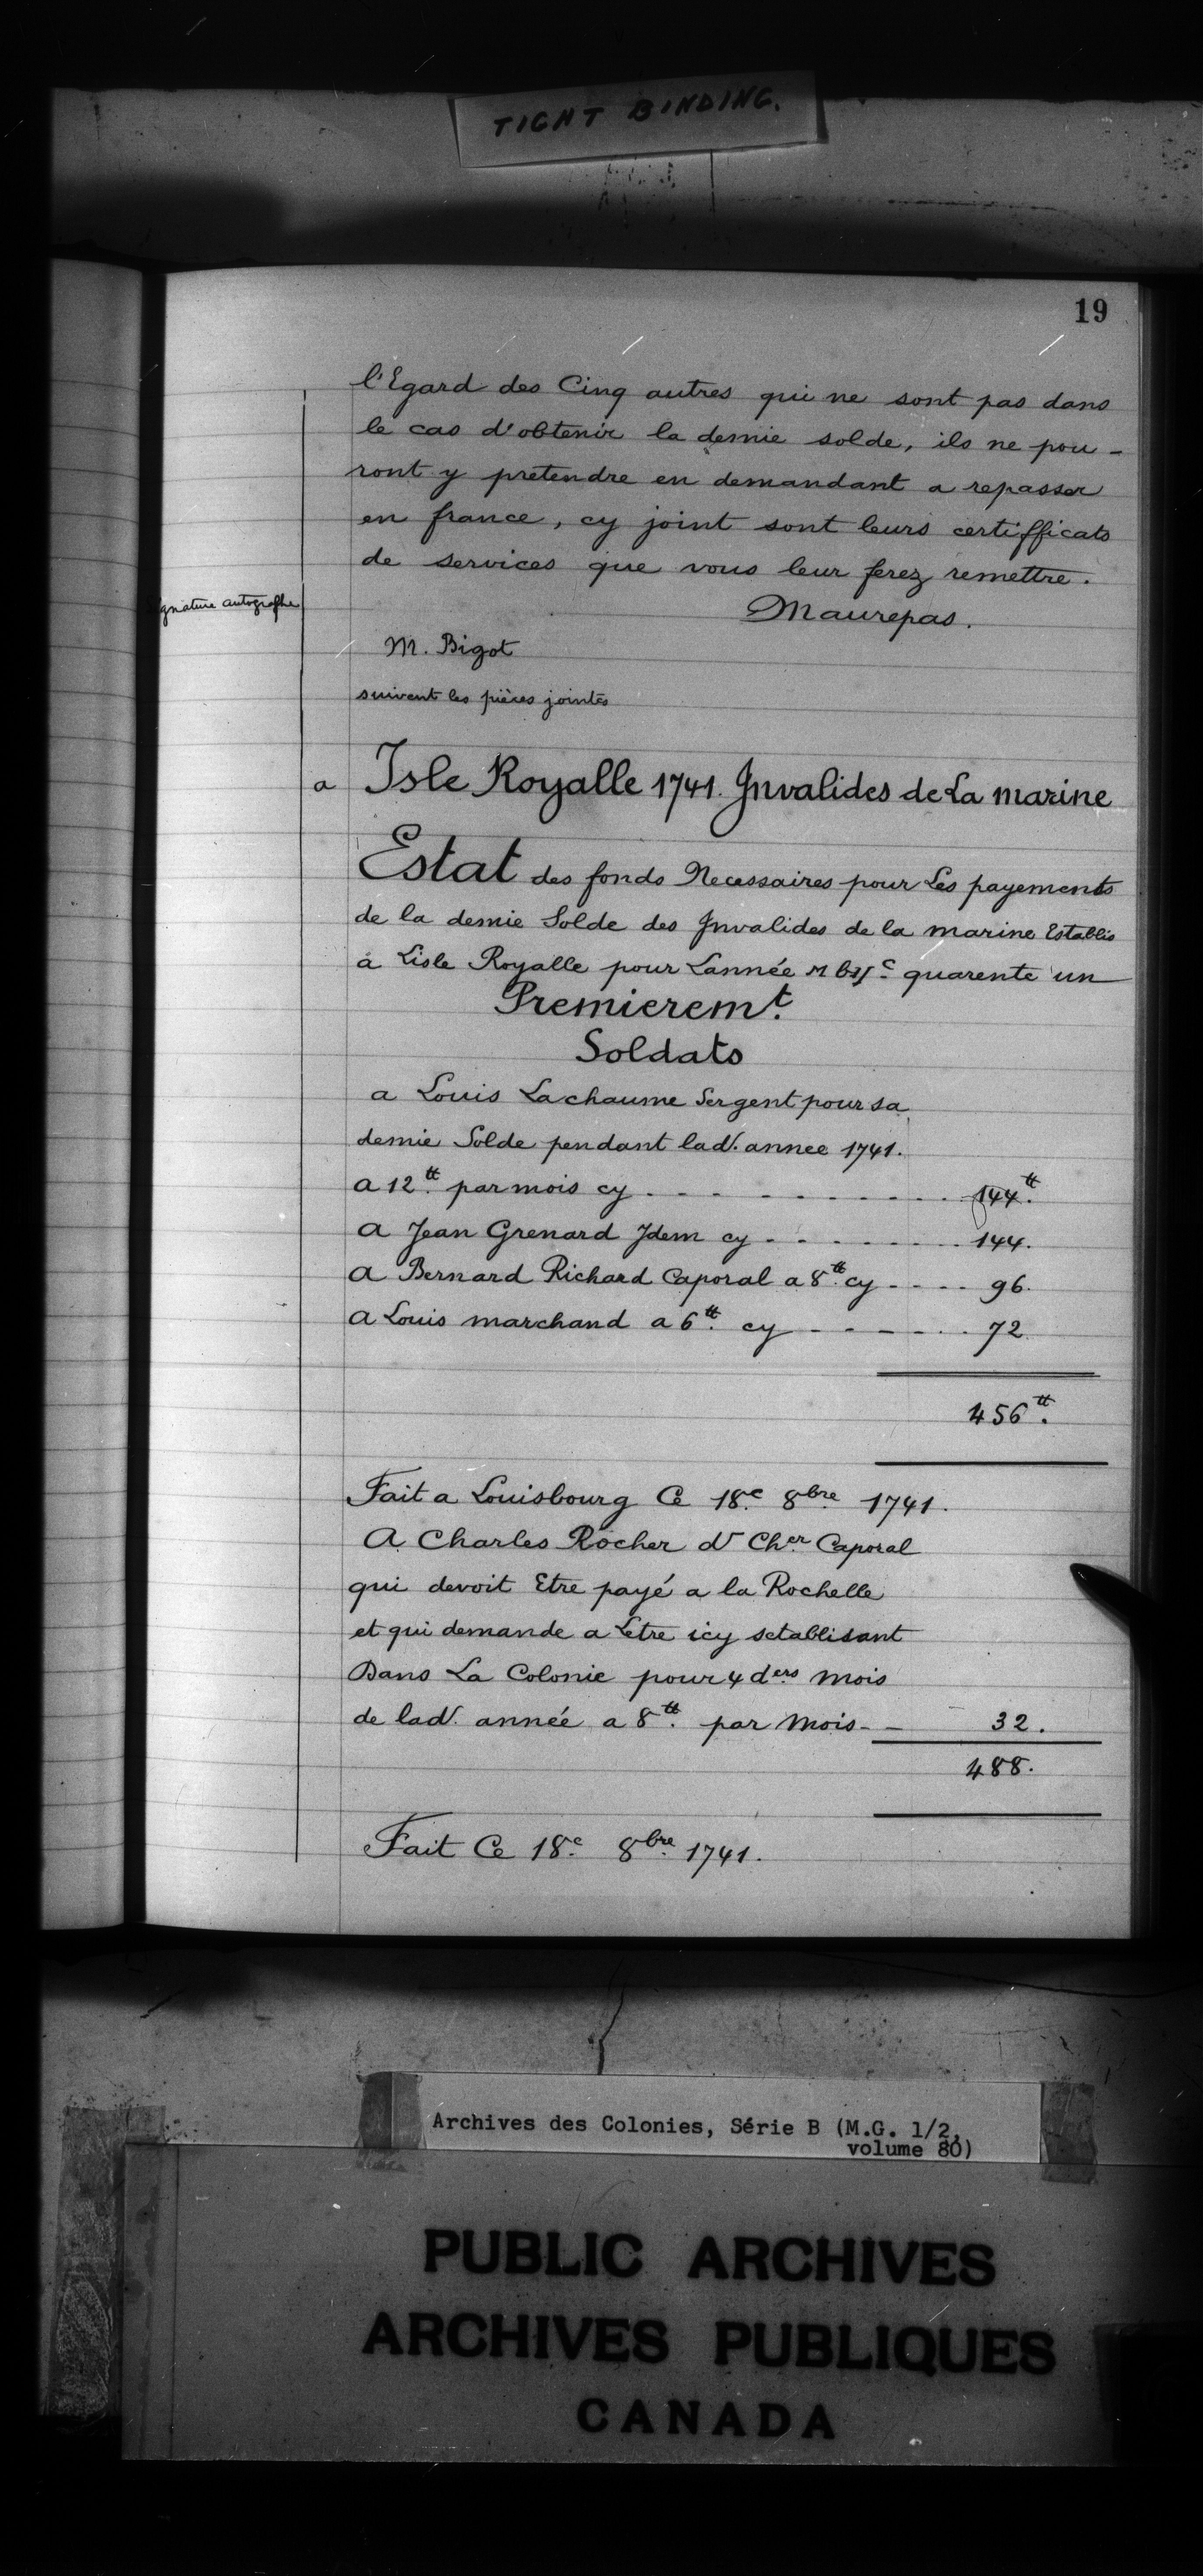 TIGHT BINDING.
19
l'Egard des Cinq autres qui ne sont pas dans
le cas d'obtenir la demie solde, ils ne pou-
ront y pretendre en demandant a repasser
en france, cy joint sont leurs certifficats
de services que vous leur ferez remettre.
Signature autographe
Maurepas.
M. Bigot
suivent les pièces jointes
a Isle Royalle 1741. Invalides de La marine
Estat des fonds Necessaires pour Les payements
de la demie Solde des Invalides de la marine Establis
à Lisle Royalle pour Lannée quarente un
Premierem.t
Soldats
a Louis Lachaume Sergent pour sa
demie Solde pendant lad. annee 1741.
a 12.tt par mois cy . . . . . . . . . . . 144.tt
a Jean Grenard Idem cy . . . . . . . 144.
a Bernard Richard Caporal a 8.tt cy . . . . 96.
a Louis marchand a 6.tt cy . . . . . . 72
456.tt
Fait a Louisbourg Ce 18.e 8.bre 1741.
A Charles Rocher d. Ch.er Caporal
qui devoit Etre payé a la Rochelle
et qui demande a Letre icy setablisant
Dans La Colonie pour 4 d.ers mois
de lad. année a 8.tt par Mois - - 32.
488.
Fait Ce 18.e 8.bre 1741.
Archives des Colonies, Série B (M.G. 1/2,
volume 80)
PUBLIC ARCHIVES
ARCHIVES PUBLIQUES
CANADA